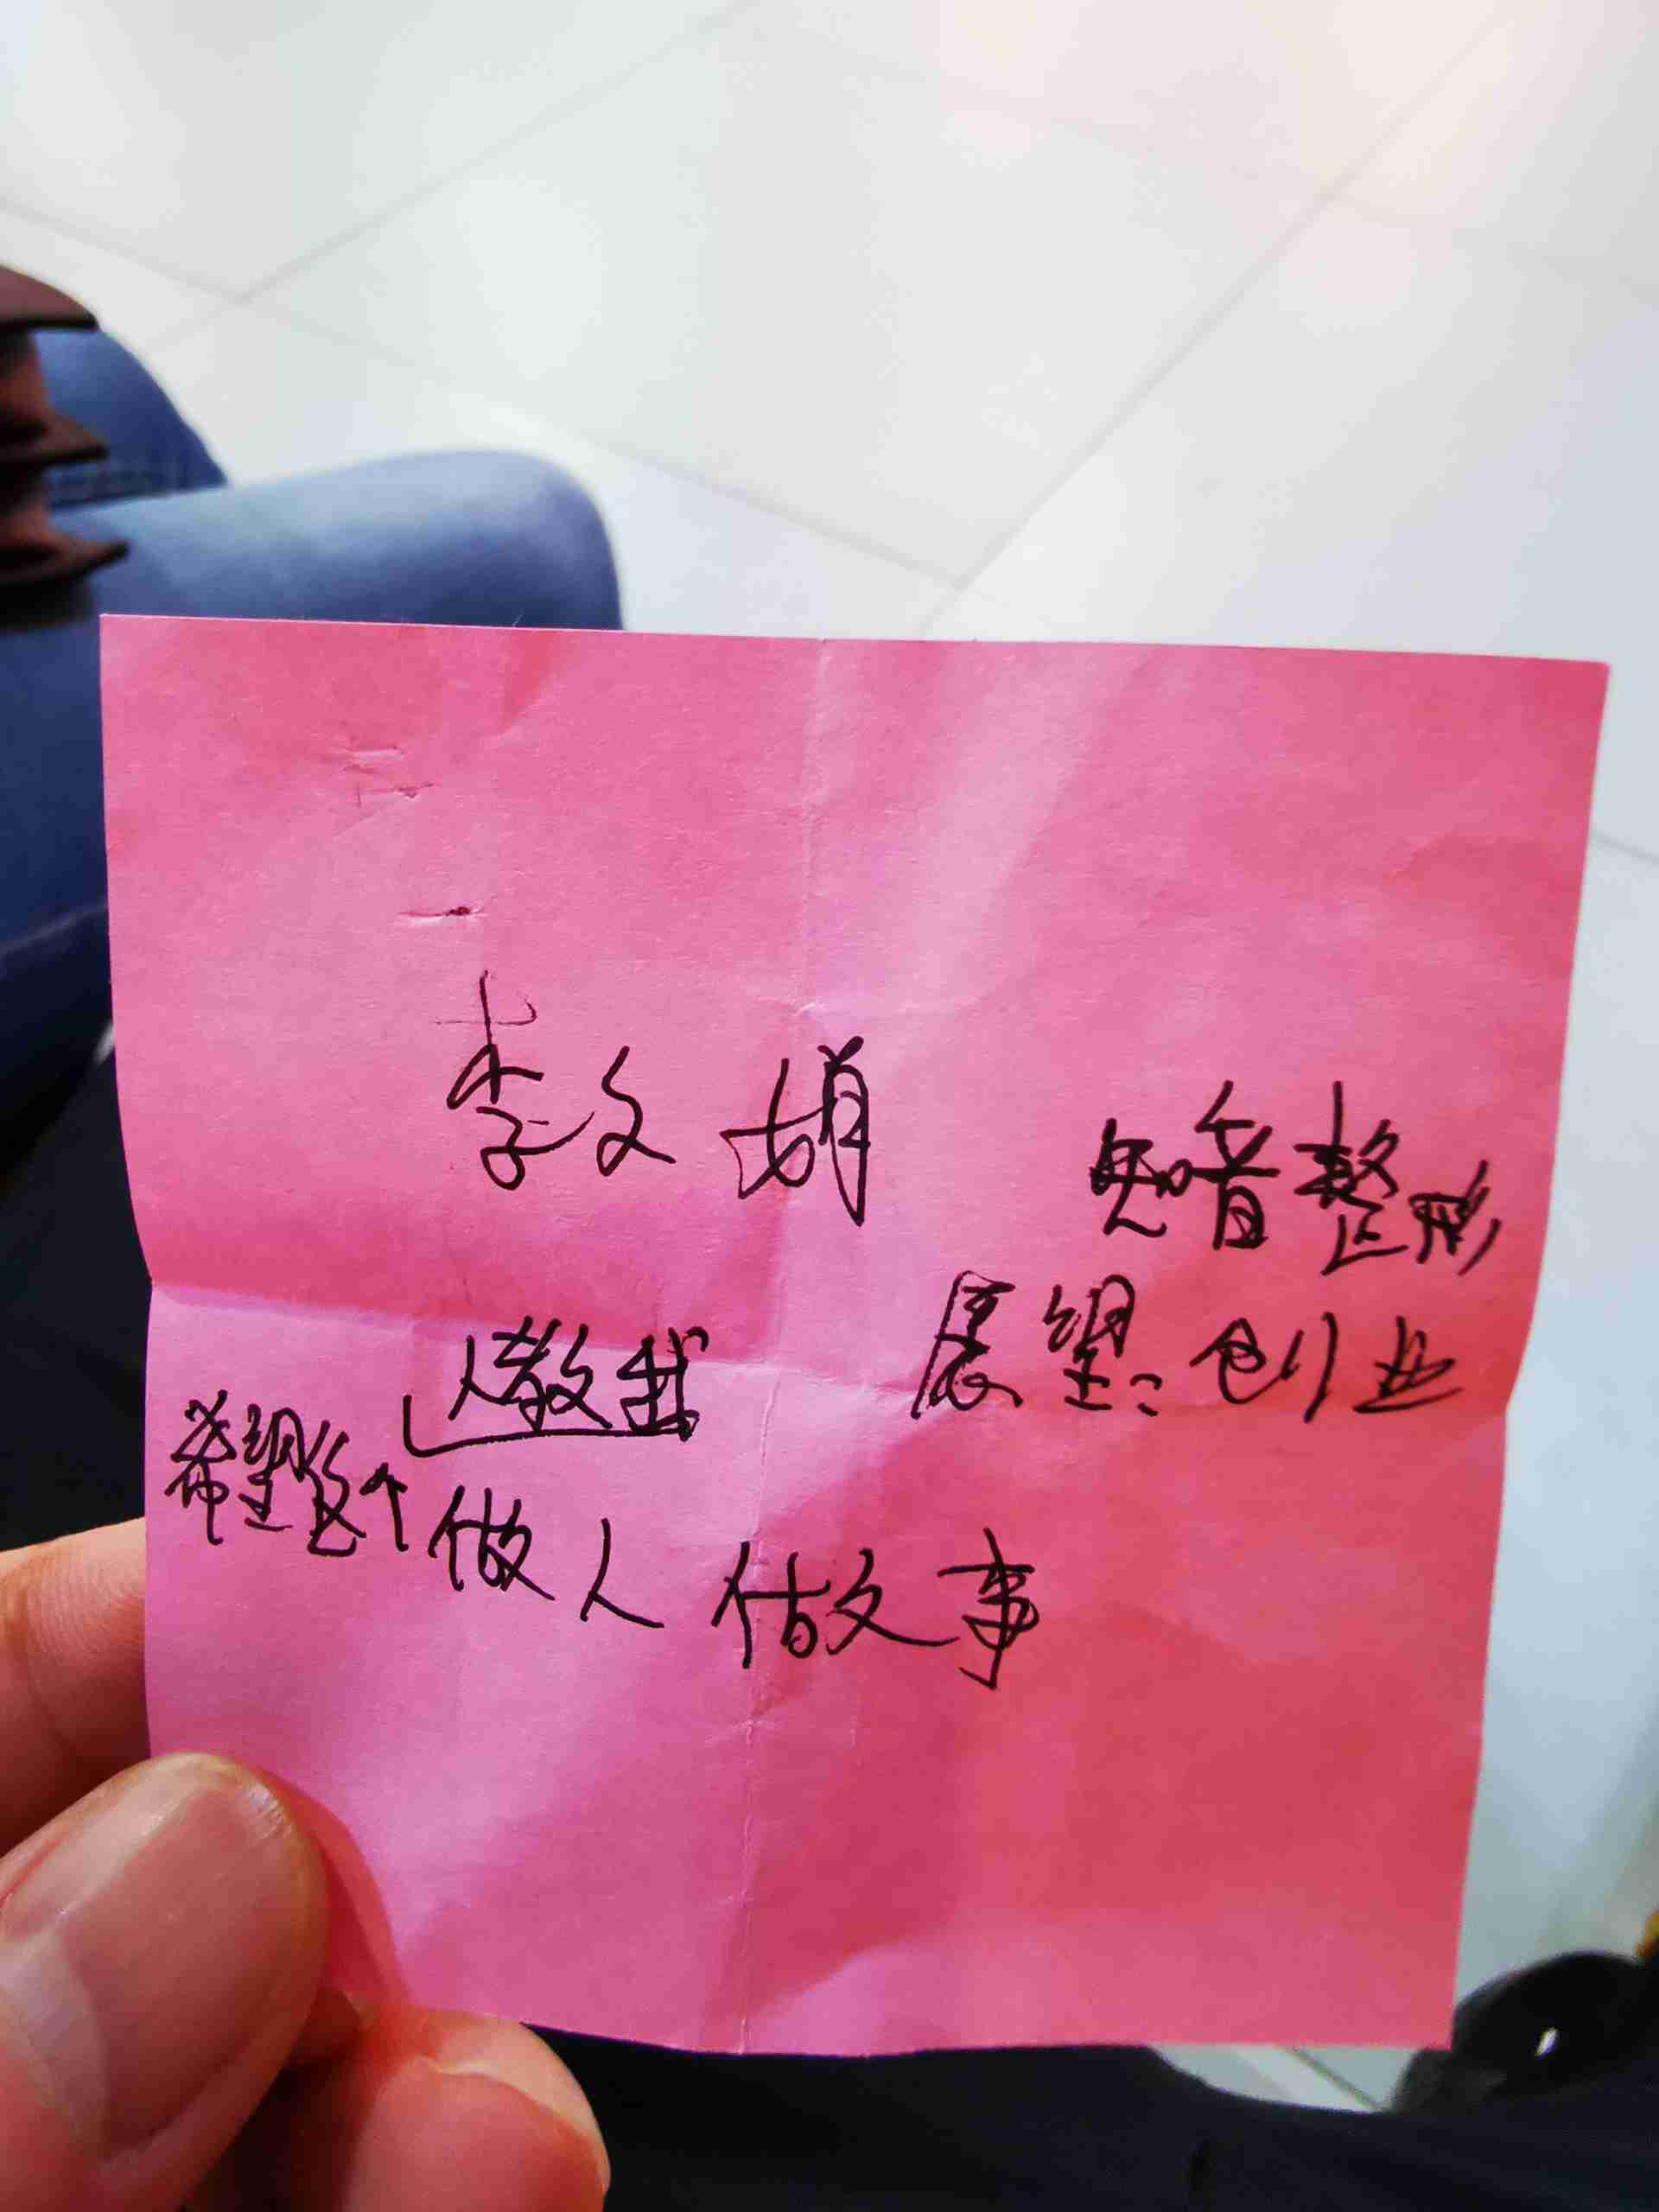 李文娟
知音整形
展望：创业
希望这个人教我
做人做事